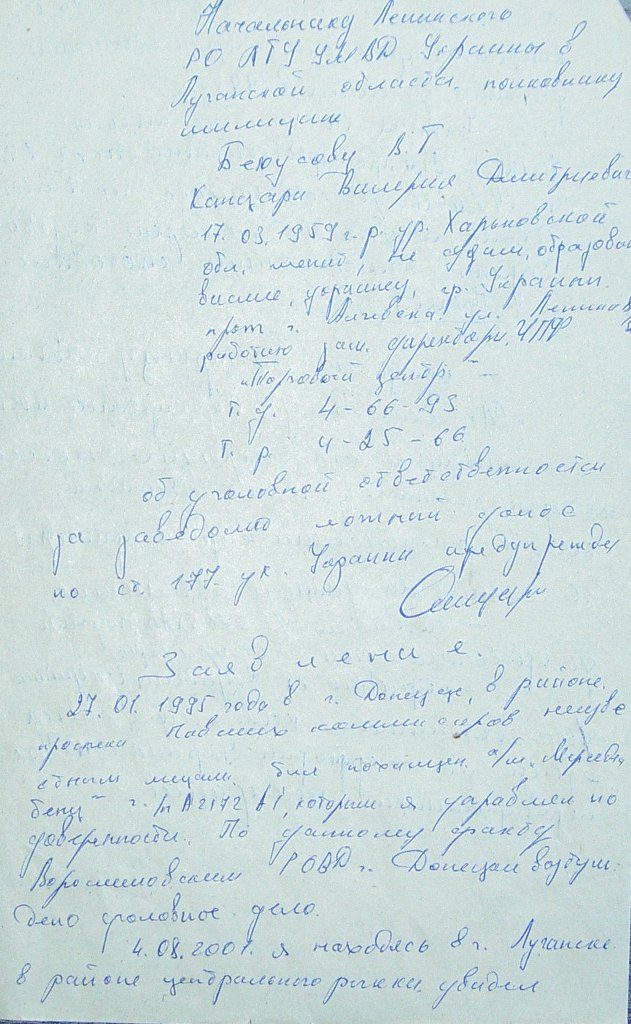 Начальнику Ленинского
РО ЛГУ УМВД Украины в
Луганской области полковнику
милиции
Бекусову В.Т.
Канцара Валерия Дмитриевич
17.03.1959 г.р. ур. Харьковской
обл, женат, не судим, образован
высшее, украинец, гр. Украины.
прож г. Алчевска ул. Ленина
работаю зам. директора, ЧПФ
"Торговый центр"
т. д. 4-66-93
т. р. 4-25-66
об уголовной ответственности
за заведомо ложный донос
по ст. 177 ук. Украины предупрежде
Заявление.
27. 01. 1995 года в г. Донецке, в районе
проспекта Павших коммунаров неизве
стными лицами был похищен а/м "Мерседес
бенц" г./н А2172 А1, которым я управлял по
доверенности. По данному факту
Ворошиловским РОВД г. Донецка возбуж
дено уголовное дело.
4.08.2001. я находясь в г. Луганске
в районе центрального рынка увидел